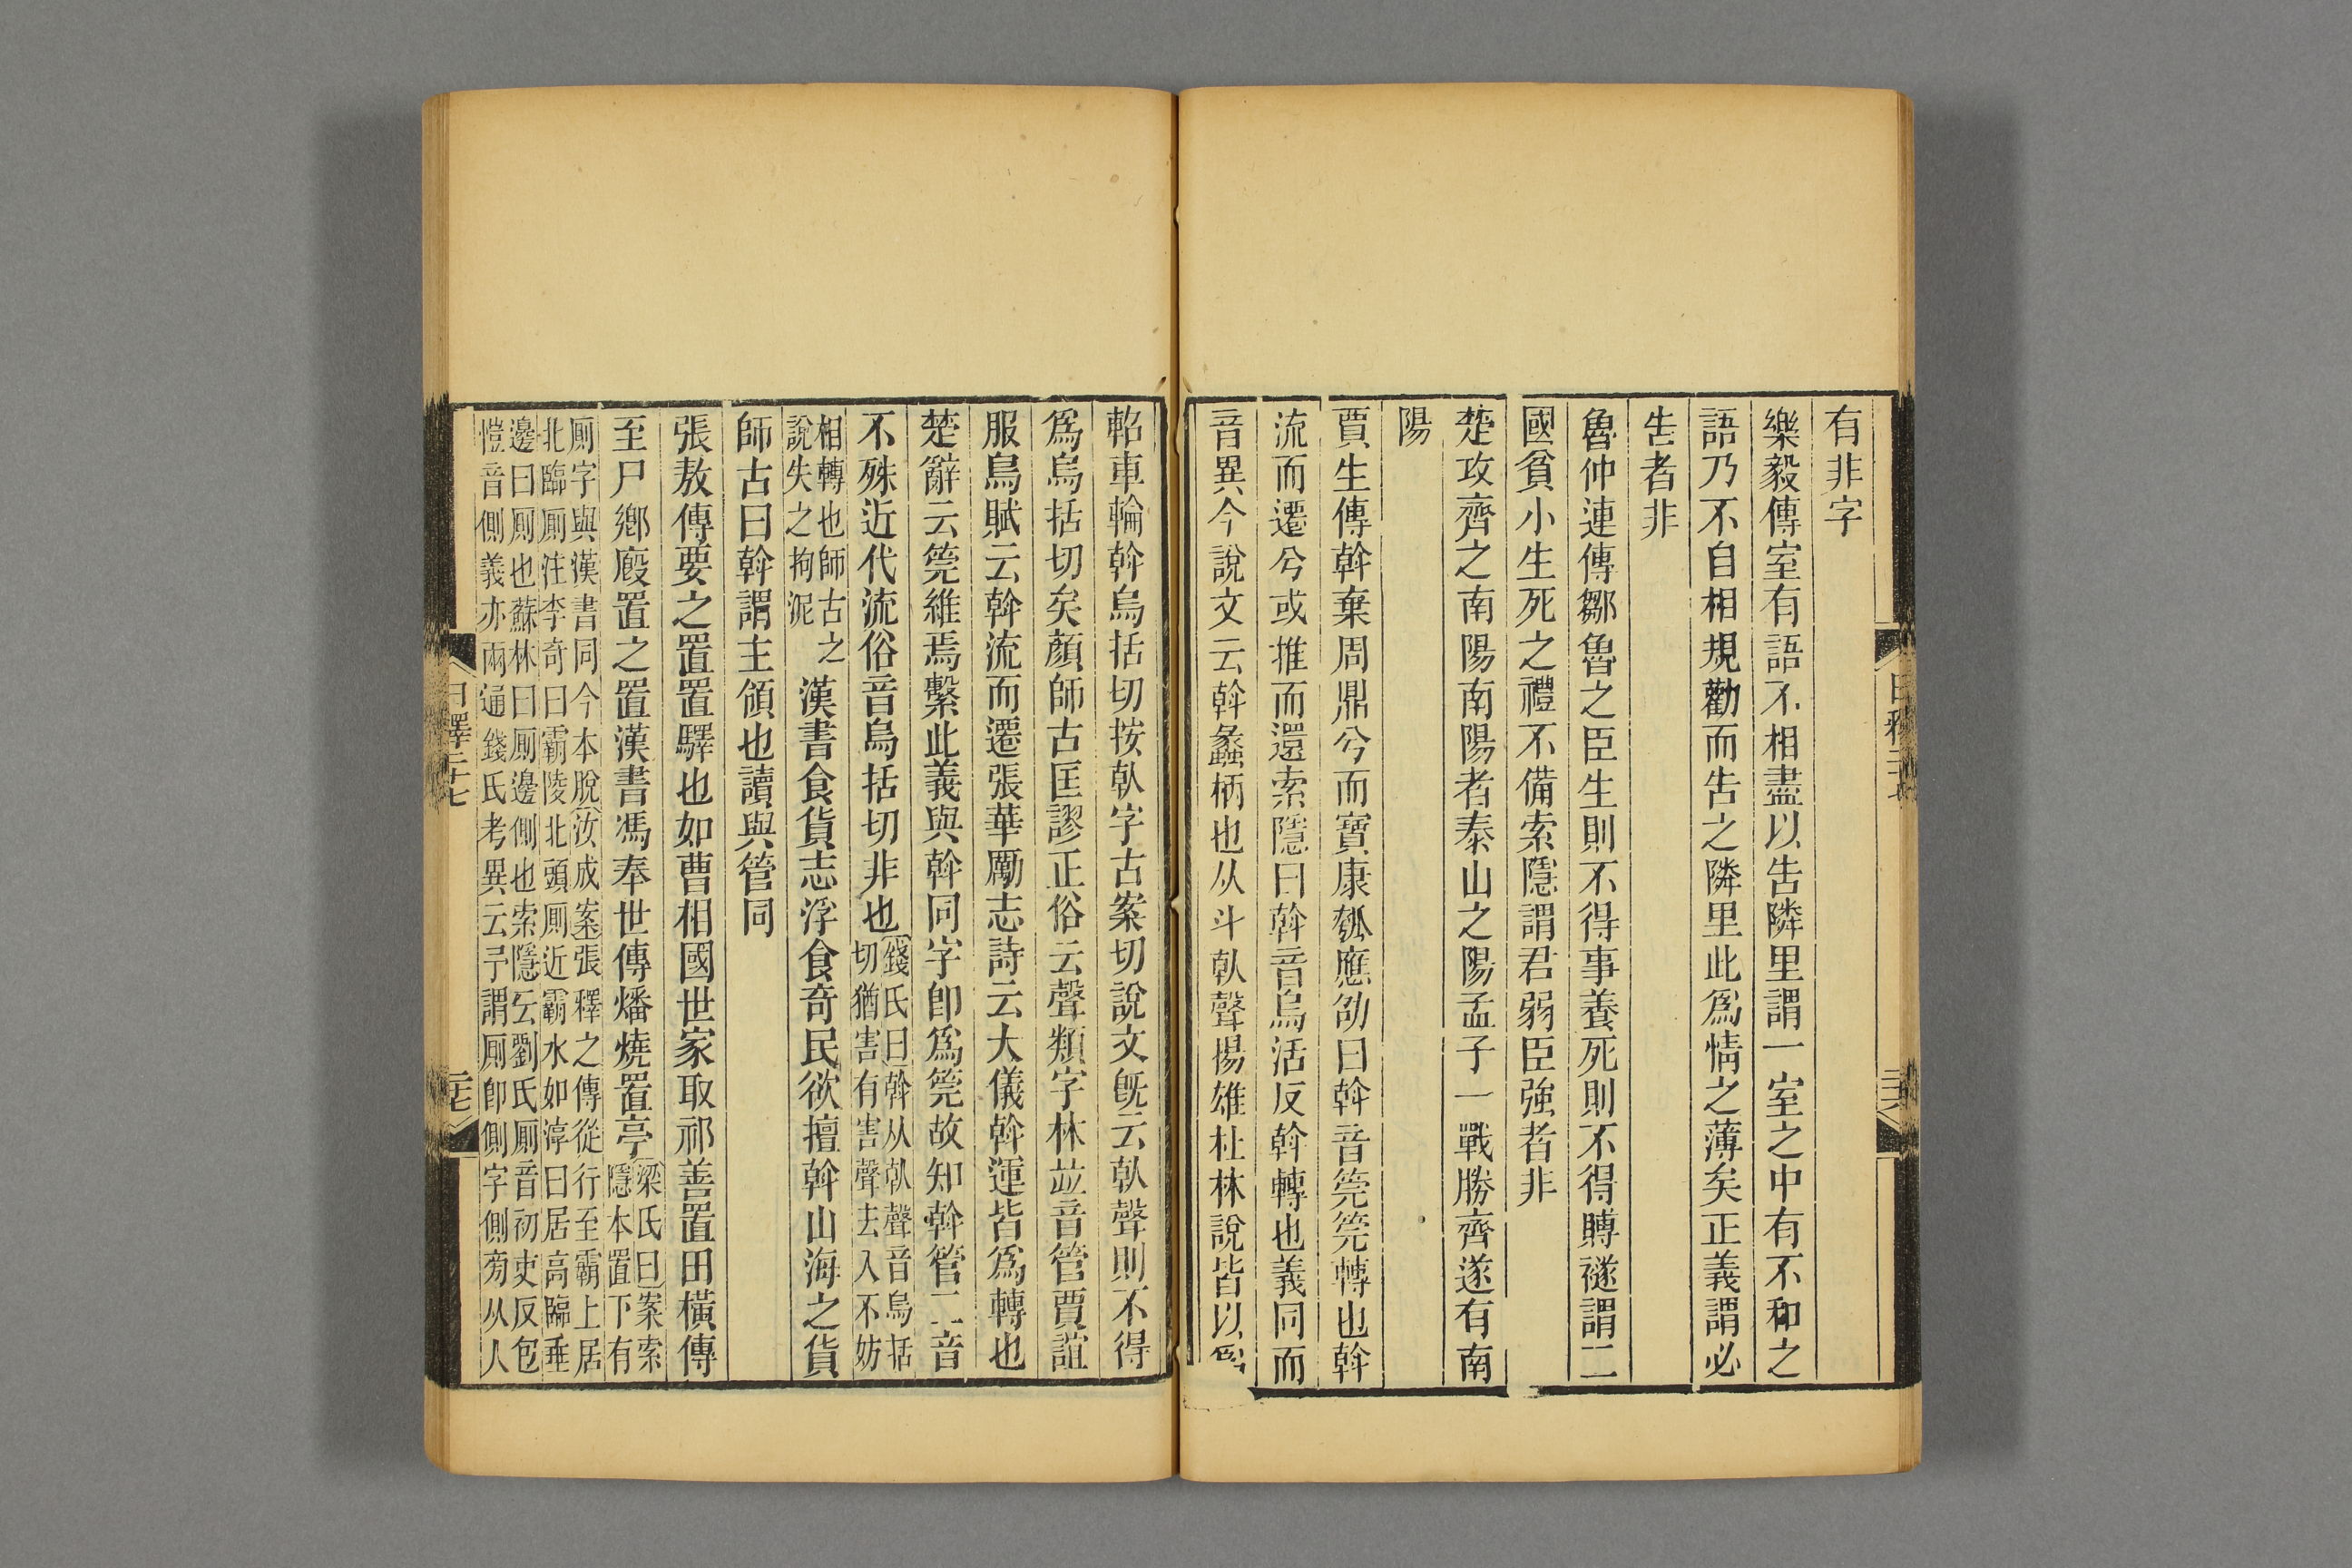 有非字
樂毅傳室有語不相盡以告隣里謂一室之中有不和之
語乃不自相規勸而告之隣里此爲情之薄矣正義謂必
告者非
魯仲連傳鄒魯之臣生則不得事養死則不得賻襚謂二
國貧小生死之禮不備索隱謂君弱臣強者非
楚攻齊之南陽南陽者泰山之陽孟子一戰勝齊遂有南
陽
賈生傳斡棄周鼎兮而寶康瓠應劭曰斡音筦筦轉也斡
流而遷兮或推而還索隱曰斡音烏活反斡轉也義同而
音異今說文云斡蠡柄也从斗倝聲揚雄杜林說皆以爲
軺車輪斡烏括切按倝字古案切說文旣云倝聲則不得
爲烏括切矣顏師古匡謬正俗云聲類字林竝音管賈誼
服鳥賦云斡流而遷張華勵志詩云大儀斡運皆爲轉也
楚辭云筦維焉繫此義與斡同字卽爲筦故知斡管二音
不殊近代流俗音烏括切非也錢氏曰斡从倝聲音烏括
切猶害有害聲去入不妨
相轉也師古之
說失之拘泥
漢書食貨志浮食奇民欲擅斡山海之貨
師古曰斡謂主領也讀與管同
張敖傳要之置置驛也如曹相國世家取祁善置田橫傳
至尸鄉廏置之置漢書馮奉世傳燔燒置亭梁氏曰案索
隱本置下有
厠字與漢書同今本脫汝成案張釋之傳從行至霸上居
北臨厠注李奇曰霸陵北頭厠近霸水如淳曰居高臨垂
邊曰厠也蘇林曰厠邊側也索隱云劉氏厠音初吏反包
愷音側義亦兩通錢氏考異云予謂厠卽側字側旁从人
日釋二十七
二七